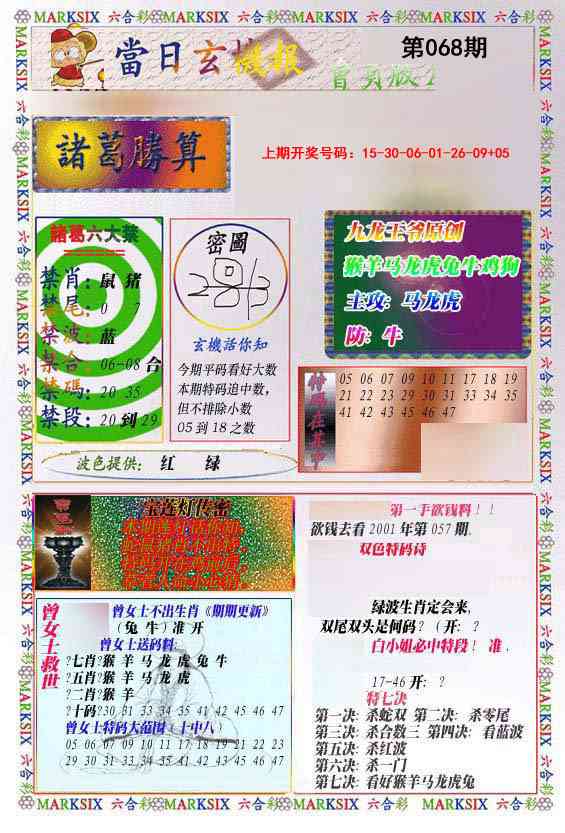 MARKSIX 六合彩 MARKSIX 六合彩 MARKSIX 六合彩 MARKSIX
當日玄機報
第068期
諸葛勝算
上期开奖号码：15-30-06-01-26-09+05
諸葛六大禁
禁肖：鼠 猪
禁尾：0 7
禁波：蓝
禁合：06-08 合
禁碼：20 35
禁段：20 到 29
密圖
玄機活你知
今期平码看好大数
本期特码追中数，
但不排除小数
05 到 18 之数
九龙王爷原创
猴羊马龙虎兔牛鸡狗
主攻：马龙虎
防：牛
特码在其中
05 06 07 09 10 11 17 18 19
21 22 23 29 30 31 33 34 35
41 42 43 45 46 47
波色提供： 红 绿
宝莲灯传密
曾女士救世
曾女士不出生肖《期期更新》
（兔 牛）准 开
曾女士送码料：
?七肖?猴 羊 马 龙 虎 兔 牛
?五肖?猴 羊 马 龙 虎
?二肖?猴 羊
?十码?30 31 33 34 35 41 42 45 46 47
曾女士特码大范围（十中八）
05 06 07 09 10 11 17 18 19 21 22 23
29 30 31 33 34 35 41 42 43 45 46 47
第一手欲钱料！！
欲钱去看 2001 年第 057 期.
双色特码诗
绿波生肖定会来，
双尾双头是何码？（ 开：？
白小姐必中特段！ 准 .
17-46 开: ?
特七决
第一决: 杀蛇双 第二决: 杀零尾
第三决: 杀合数三 第四决: 看蓝波
第五决: 杀红波
第六决: 杀一门
第七决: 看好猴羊马龙虎兔
MARKSIX 六合彩 MARKSIX 六合彩 MARKSIX 六合彩 MARKSIX 六合彩